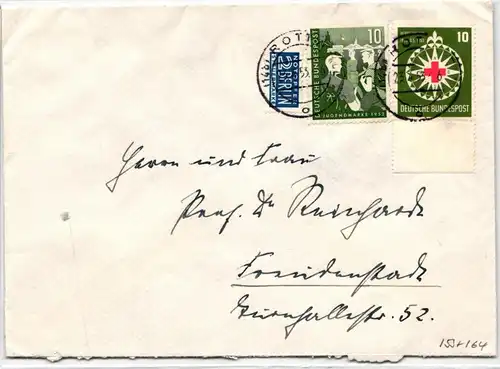 NOTOPFER
2 BERLIN
STEUERMARKE
10
DEUTSCHE BUNDESPOST
JUGENDMARKE 1952
10
DEUTSCHE BUNDESPOST
(14b) ROTT
Herrn und Frau
Prof. Dr Reinhardt
Freudenstadt
Turnhallestr. 52.
153+164